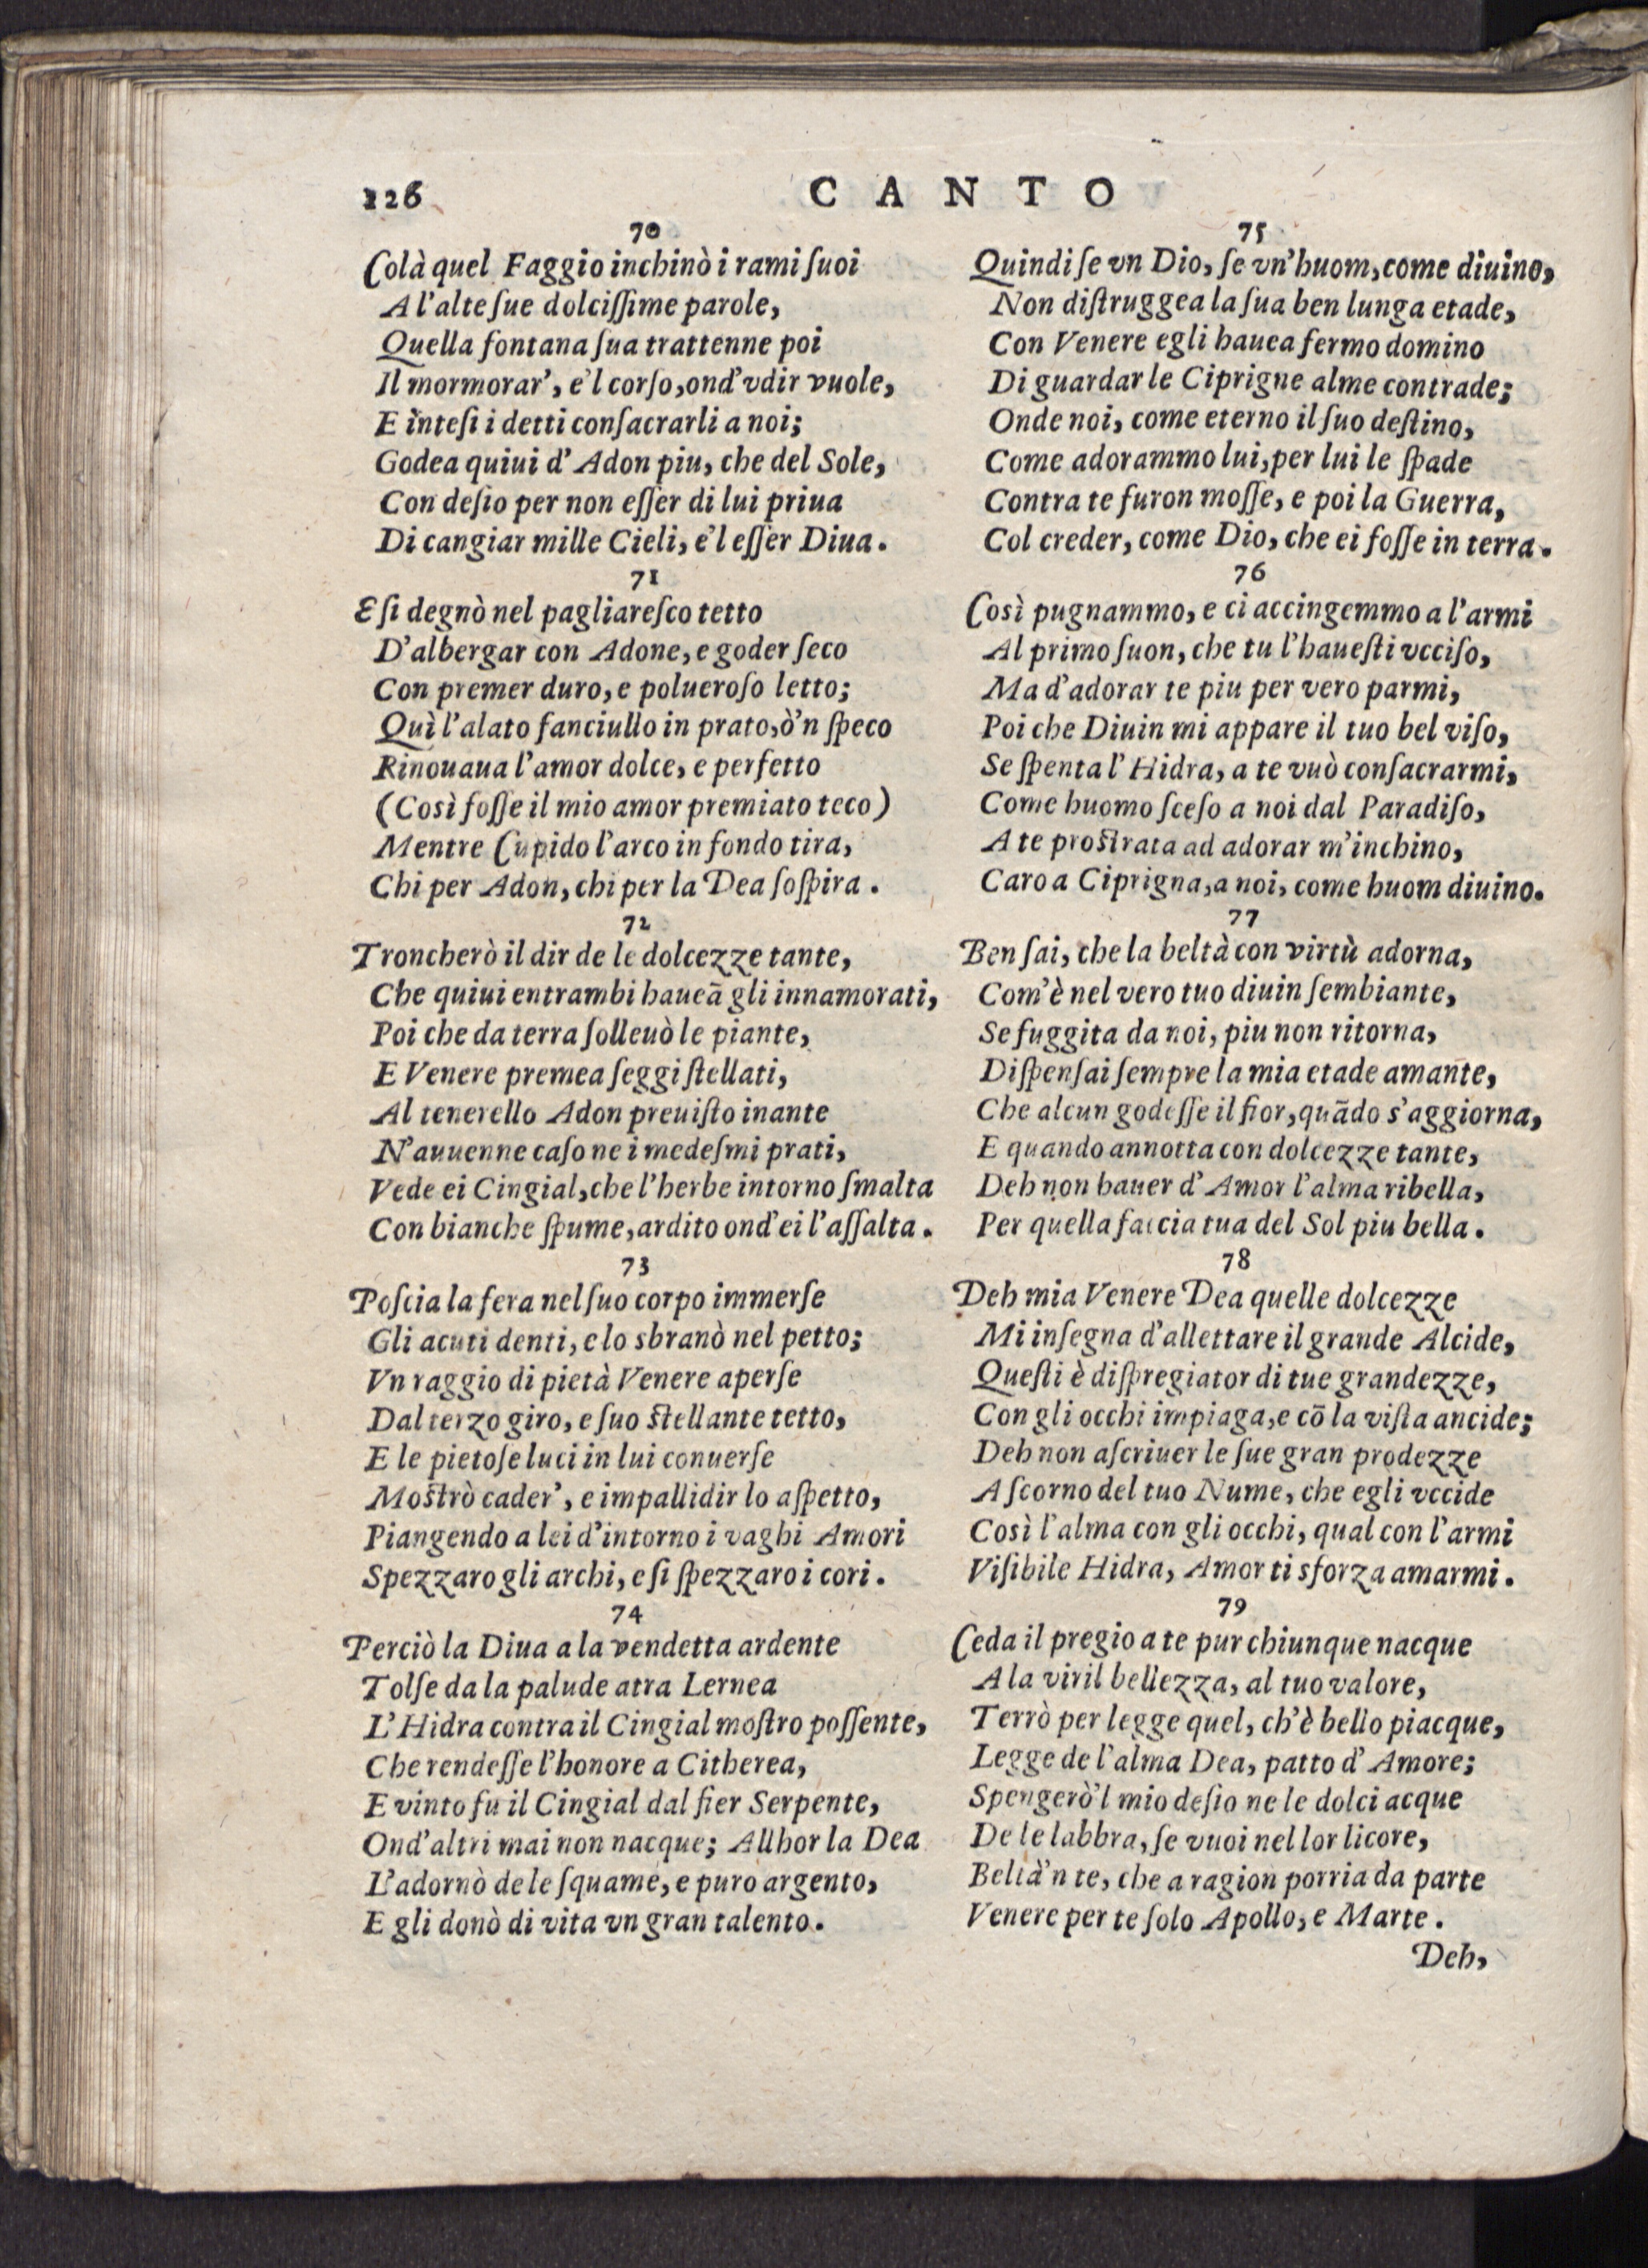 126 CANTO
70
Colà quel Faggio inchinò i rami ſuoi
A l'alte ſue dolciſſime parole,
Quella fontana ſua trattenne poi
Il mormorar', e'l corſo, ond'vdir vuole,
E inteſi i detti conſacrarli a noi;
Godea quiui d'Adon piu, che del Sole,
Con deſio per non eſſer di lui priua
Di cangiar mille Cieli, e'l eſſer Diua.
71
E ſi degnò nel pagliareſco tetto
D'albergar con Adone, e goder ſeco
Con premer duro, e polueroſo letto;
Quì l'alato fanciullo in prato, ò'n ſpeco
Rinouaua l'amor dolce, e perfetto
(Così foſſe il mio amor premiato teco)
Mentre Cupido l'arco in fondo tira,
Chi per Adon, chi per la Dea ſoſpira.
72
Troncherò il dir de le dolcezze tante,
Che quiui entrambi haueā gli innamorati,
Poi che da terra ſolleuò le piante,
E Venere premea ſeggi ſtellati,
Al tenerello Adon preuiſto inante
N'auuenne caſo ne i medeſmi prati,
Vede ei Cingial, che l'herbe intorno ſmalta
Con bianche ſpume, ardito ond'ei l'aſſalta.
73
Poſcia la fera nel ſuo corpo immerſe
Gli acuti denti, e lo sbranò nel petto;
Vn raggio di pietà Venere aperſe
Dal terzo giro, e ſuo ſtellante tetto,
E le pietoſe luci in lui conuerſe
Moſtrò cader', e impallidir lo aſpetto,
Piangendo a lei d'intorno i vaghi Amori
Spezzaro gli archi, e ſi ſpezzaro i cori.
74
Perciò la Diua a la vendetta ardente
Tolſe da la palude atra Lernea
L'Hidra contra il Cingial moſtro poſſente,
Che rendeſſe l'honore a Citherea,
E vinto fu il Cingial dal fier Serpente,
Ond'altri mai non nacque; Allhor la Dea
L'adornò de le ſquame, e puro argento,
E gli donò di vita vn gran talento.
75
Quindi ſe vn Dio, ſe vn'huom, come diuino,
Non diſtruggea la ſua ben lunga etade,
Con Venere egli hauea fermo domino
Di guardar le Ciprigne alme contrade;
Onde noi, come eterno il ſuo deſtino,
Come adorammo lui, per lui le ſpade
Contra te furon moſſe, e poi la Guerra,
Col creder, come Dio, che ei foſſe in terra.
76
Così pugnammo, e ci accingemmo a l'armi
Al primo ſuon, che tu l'haueſti vcciſo,
Ma d'adorar te piu per vero parmi,
Poi che Diuin mi appare il tuo bel viſo,
Se ſpenta l'Hidra, a te vuò conſacrarmi,
Come huomo ſceſo a noi dal Paradiſo,
A te proſtrata ad adorar m'inchino,
Caro a Ciprigna, a noi, come huom diuino.
77
Ben ſai, che la beltà con virtù adorna,
Com'è nel vero tuo diuin ſembiante,
Se fuggita da noi, piu non ritorna,
Diſpenſai ſempre la mia etade amante,
Che alcun godeſſe il fior, quādo s'aggiorna,
E quando annotta con dolcezze tante,
Deh non hauer d'Amor l'alma ribella,
Per quella faccia tua del Sol piu bella.
78
Deh mia Venere Dea quelle dolcezze
Mi inſegna d'allettare il grande Alcide,
Queſti è diſpregiator di tue grandezze,
Con gli occhi impiaga, e cō la viſta ancide;
Deh non aſcriuer le ſue gran prodezze
A ſcorno del tuo Nume, che egli vccide
Così l'alma con gli occhi, qual con l'armi
Viſibile Hidra, Amor ti sforza amarmi.
79
Ceda il pregio a te pur chiunque nacque
A la viril bellezza, al tuo valore,
Terrò per legge quel, ch'è bello piacque,
Legge de l'alma Dea, patto d'Amore;
Spengerò'l mio deſio ne le dolci acque
De le labbra, ſe vuoi nel lor licore,
Beltà'n te, che a ragion porria da parte
Venere per te ſolo Apollo, e Marte.
Deh,